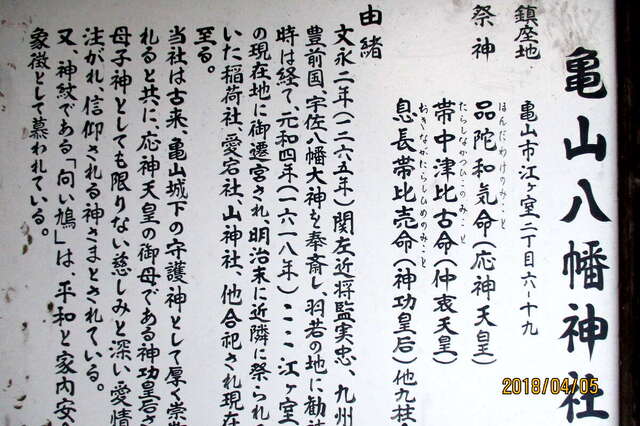 亀山八幡神社
鎮座地
亀山市江ヶ室二丁目六ー十九
祭神
ほんだわけのみこと
品陀和気命(応神天皇)
たらしなかつひこのみこと
帯中津比古命(仲哀天皇)
おきながたらしひめのみこと
息長帯比売命(神功皇后)他九柱
由緒
文永二年(一二六五年)関左近将監実忠、九州
豊前国、宇佐八幡大神を奉斎し、羽若の地に勧
時は経て、元和四年(一六一八年)ここ江ヶ室
の現在地に御遷宮され、明治末に近隣に祭られ
いた稲荷社、愛宕社、山神社、他合祀され現在
至る。
当社は古来、亀山城下の守護神として厚く崇
れると共に、応神天皇の御母である神功皇后さ
母子神としても限りない慈しみと深い愛情
注がれ、信仰される神さまとされている。
又、神紋である「向い鳩」は、平和と家内安
象徴として慕われている。
2018/04/05